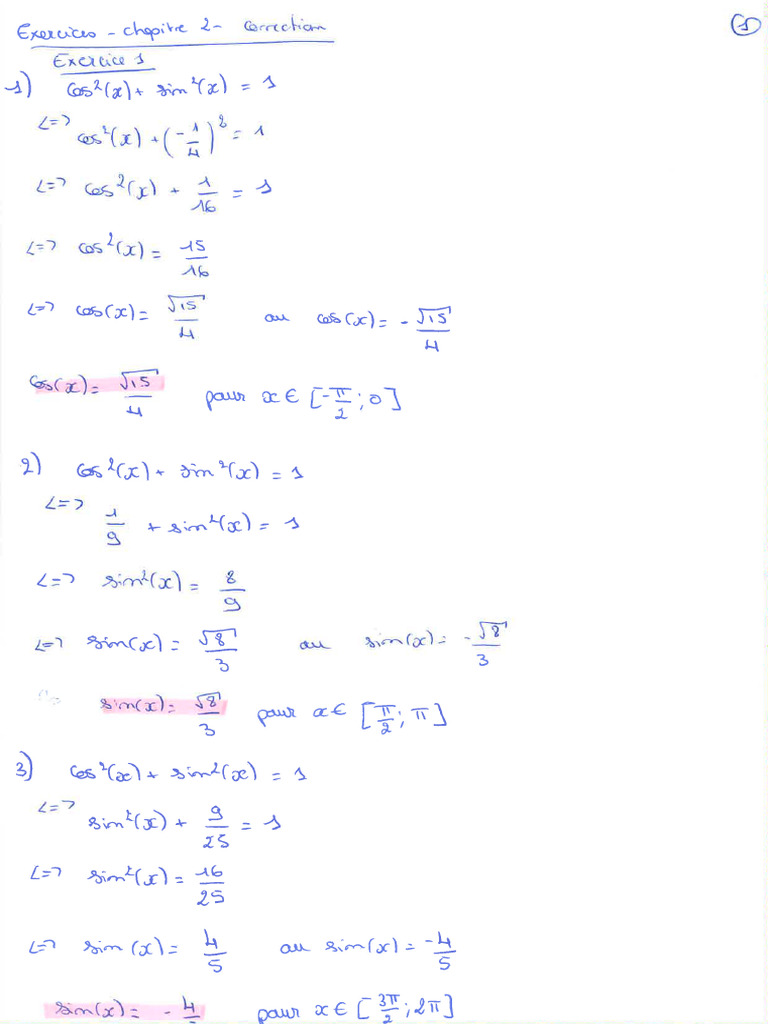 Exercices - chapitre 2 - correction
①
Exercice 1
1) cos²(x) + sin²(x) = 1
<=> cos²(x) + (-1/4)² = 1
<=> cos²(x) + 1/16 = 1
<=> cos²(x) = 15/16
<=> cos(x) = √15/4 ou cos(x) = -√15/4
cos(x) = √15/4 pour x ∈ [-π/2 ; 0]
2) cos²(x) + sin²(x) = 1
<=> 1/9 + sin²(x) = 1
<=> sin²(x) = 8/9
<=> sin(x) = √8/3 ou sin(x) = -√8/3
sin(x) = √8/3 pour x ∈ [π/2 ; π]
3) cos²(x) + sin²(x) = 1
<=> sin²(x) + 9/25 = 1
<=> sin²(x) = 16/25
<=> sin(x) = 4/5 ou sin(x) = -4/5
sin(x) = -4/5 pour x ∈ [3π/2 ; 2π]